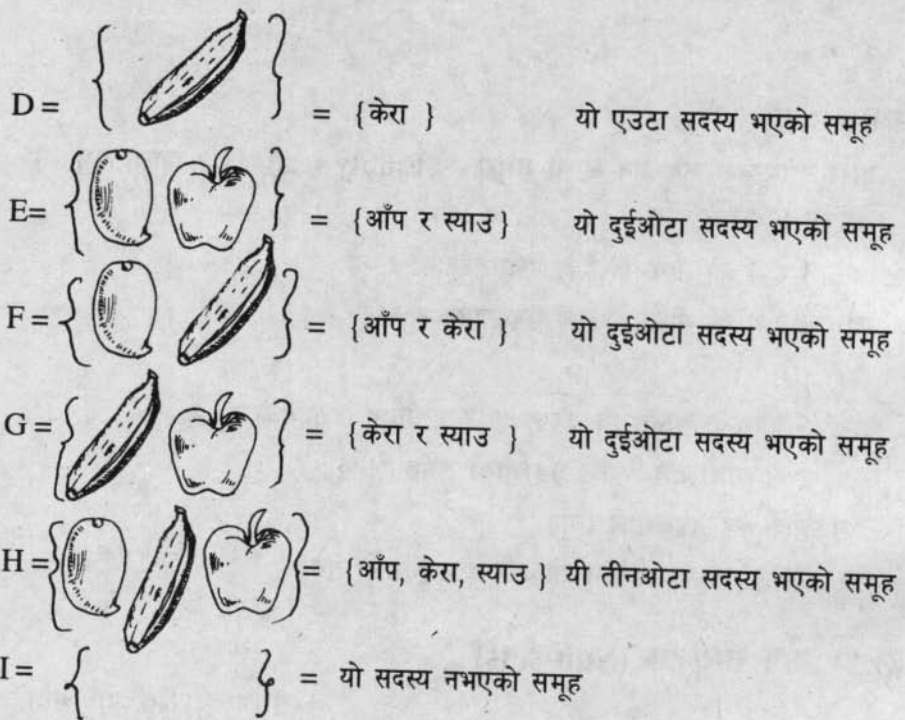 D = { } = {केरा } यो एउटा सदस्य भएको समूह
E= { } = {आँप र स्याउ} यो दुईओटा सदस्य भएको समूह
F = { } = {आँप र केरा } यो दुईओटा सदस्य भएको समूह
G = { } = {केरा र स्याउ } यो दुईओटा सदस्य भएको समूह
H = { } = {आँप, केरा, स्याउ } यी तीनओटा सदस्य भएको समूह
I = { } = यो सदस्य नभएको समूह